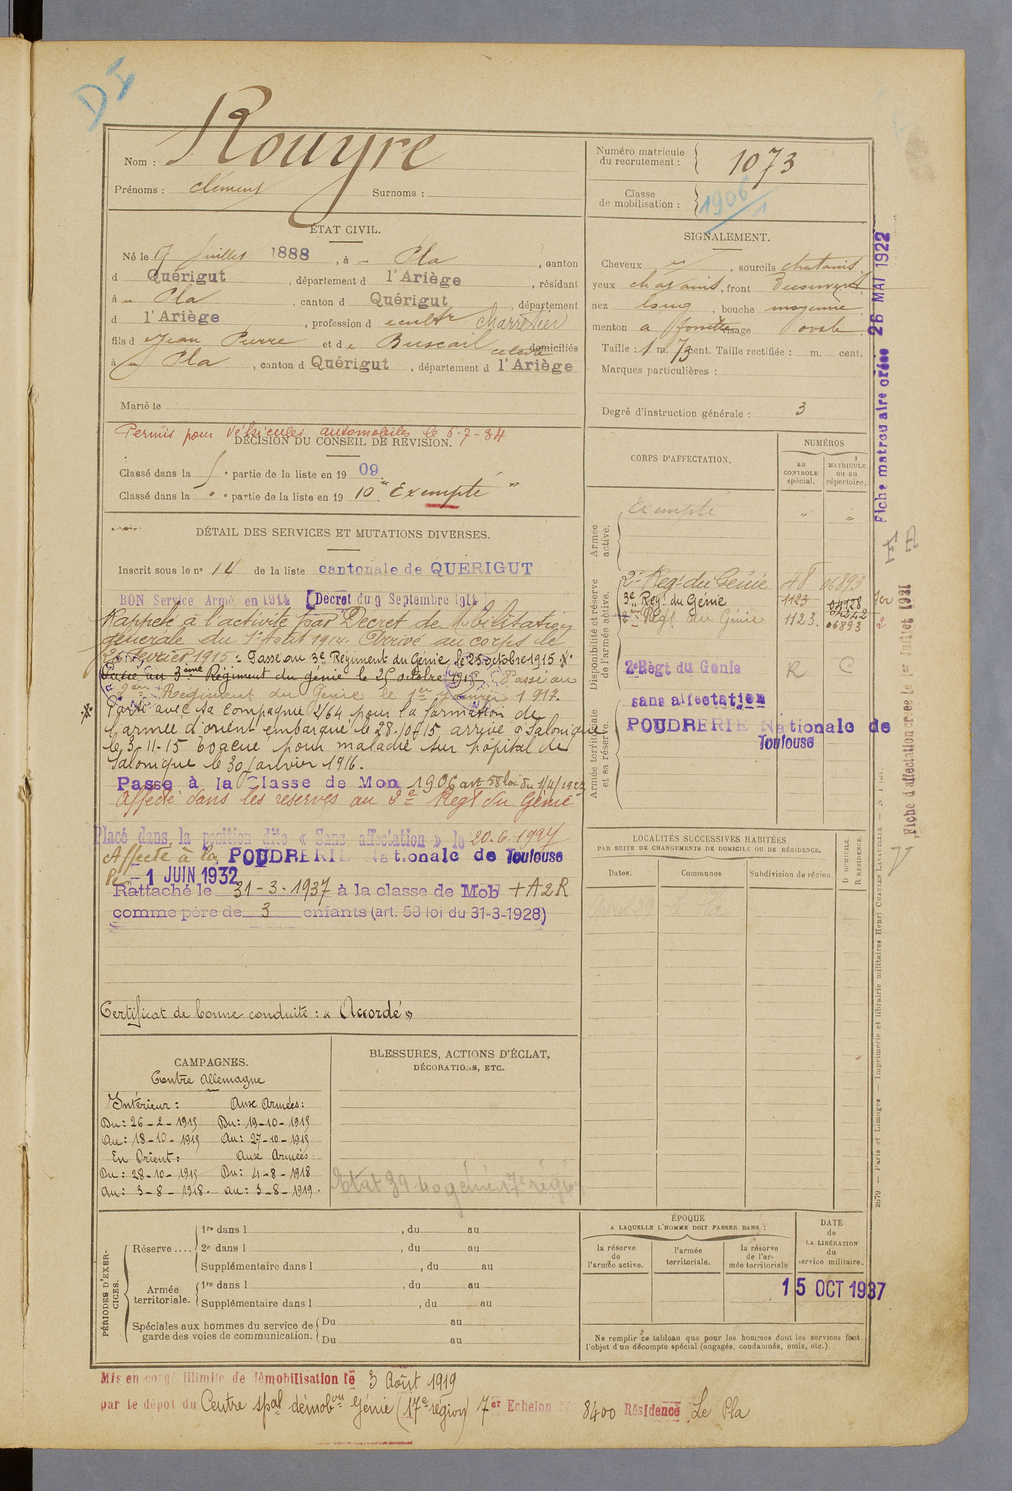 DI
Nom : Rouyre
Prénoms : clément Surnoms :
Numéro matricule du recrutement : 1073
Classe de mobilisation : 1906
ÉTAT CIVIL.
Né le Juillet 1888, à Pla, canton
d Quérigut, département d l'Ariège, résidant
à Pla, canton d Quérigut, département
d l'Ariège, profession d cultr charretier
fils d Jean Pierre et de Buscail domiciliés
à Pla, canton d Quérigut, département d l'Ariège
Marié le
SIGNALEMENT.
Cheveux , sourcils chatains
yeux chatains, front Découvert
nez long, bouche moyenne
menton à fossette visage ovale
Taille : 1 m. 73 cent. Taille rectifiée : m. cent.
Marques particulières :
Degré d'instruction générale : 3
Permis pour véhicules automobiles le 6-7-34
DÉCISION DU CONSEIL DE RÉVISION.
Classé dans la partie de la liste en 1909
Classé dans la " e partie de la liste en 1910 " Exempté "
DÉTAIL DES SERVICES ET MUTATIONS DIVERSES.
Inscrit sous le n° 14 de la liste cantonale de QUERIGUT
BON Service Armé en 1914 [Decret du 9 Septembre 1914
Rappelé à l'activité par Décret de Mobilisation
générale du 1er Août 1914. Arrivé au corps le
26 février 1915. Passé au 3e Régiment du Génie le 25 octobre 1915 *
Passé au 3ème Régiment du génie le 25 octobre 1915 Passé au
2ème Régiment du Génie le 1er Janvier 1917.
* Parti avec sa compagnie 2/64 pour la formation de
l'armée d'orient embarqué le 28-10-15 arrivé à Salonique
le 3-11-15 évacué pour maladie sur hôpital de
Salonique le 30 Janvier 1916.
Passé à la Classe de Mon 1906 art 58 loi du 1/4/1923
Affecté dans les réserves au 2e Regt du Génie
Placé dans la position dite « Sans affectation » le 20.6.1927
Affecté à la POUDRERIE Nationale de Toulouse
le -1 JUIN 1932
Rattaché le 31-3-1937 à la classe de Mob + A2R
comme père de 3 enfants (art. 58 loi du 31-3-1928)
Certificat de bonne conduite : « Accordé »
CORPS D'AFFECTATION.
NUMÉROS
au CONTROLE spécial.
MATRICULE ou au répertoire.
Armée active.
Exempté " "
Disponibilité et réserve de l'armée active.
2e Regt du Génie 48 06893
3e Regt du Génie 1123
2ème Regt du Génie 1123. 06893
2e Règt du Genie R C
sans affectation
Armée territoriale et sa réserve.
POUDRERIE Nationale de
Toulouse
Fiche matriculaire créée 26 MAI 1922
Fiche d'affectation créée le 1er Juillet 1931
LOCALITÉS SUCCESSIVES HABITÉES
PAR SUITE DE CHANGEMENTS DE DOMICILE OU DE RÉSIDENCE.
Dates. Communes Subdivision de région. D DOMICILE. R RÉSIDENCE.
CAMPAGNES.
Contre Allemagne
Intérieur : Aux Armées :
Du : 26-2-1915 Du : 19-10-1915
Au : 18-10-1915 Au : 27-10-1915
En Orient : Aux Armées
Du : 28-10-1915 Du : 4-8-1918
Au : 3-8-1918. au : 3-8-1919.
BLESSURES, ACTIONS D'ÉCLAT,
DÉCORATIONS, ETC.
PÉRIODES D'EXERCICES.
Réserve.... 1re dans l , du au
2e dans l , du au
Supplémentaire dans l , du au
Armée territoriale. 1re dans l , du au
Supplémentaire dans l , du au
Spéciales aux hommes du service de garde des voies de communication. Du au
Du au
ÉPOQUE
A LAQUELLE L'HOMME DOIT PASSER DANS :
la réserve de l'armée active.
l'armée territoriale.
la réserve de l'armée territoriale
DATE de LA LIBÉRATION du service militaire.
15 OCT 1937
Ne remplir ce tableau que pour les hommes dont les services font
l'objet d'un décompte spécial (engagés, condamnés, omis, etc.).
2079 — Paris et Limoges — Imprimerie et librairie militaires Henri CHARLES-LAVAUZELLE
Mis en congé illimité de démobilisation le 3 Août 1919
par le dépôt du Centre spal démobon Génie (17e région) 7er Echelon N° 8400 Résidence Le Pla